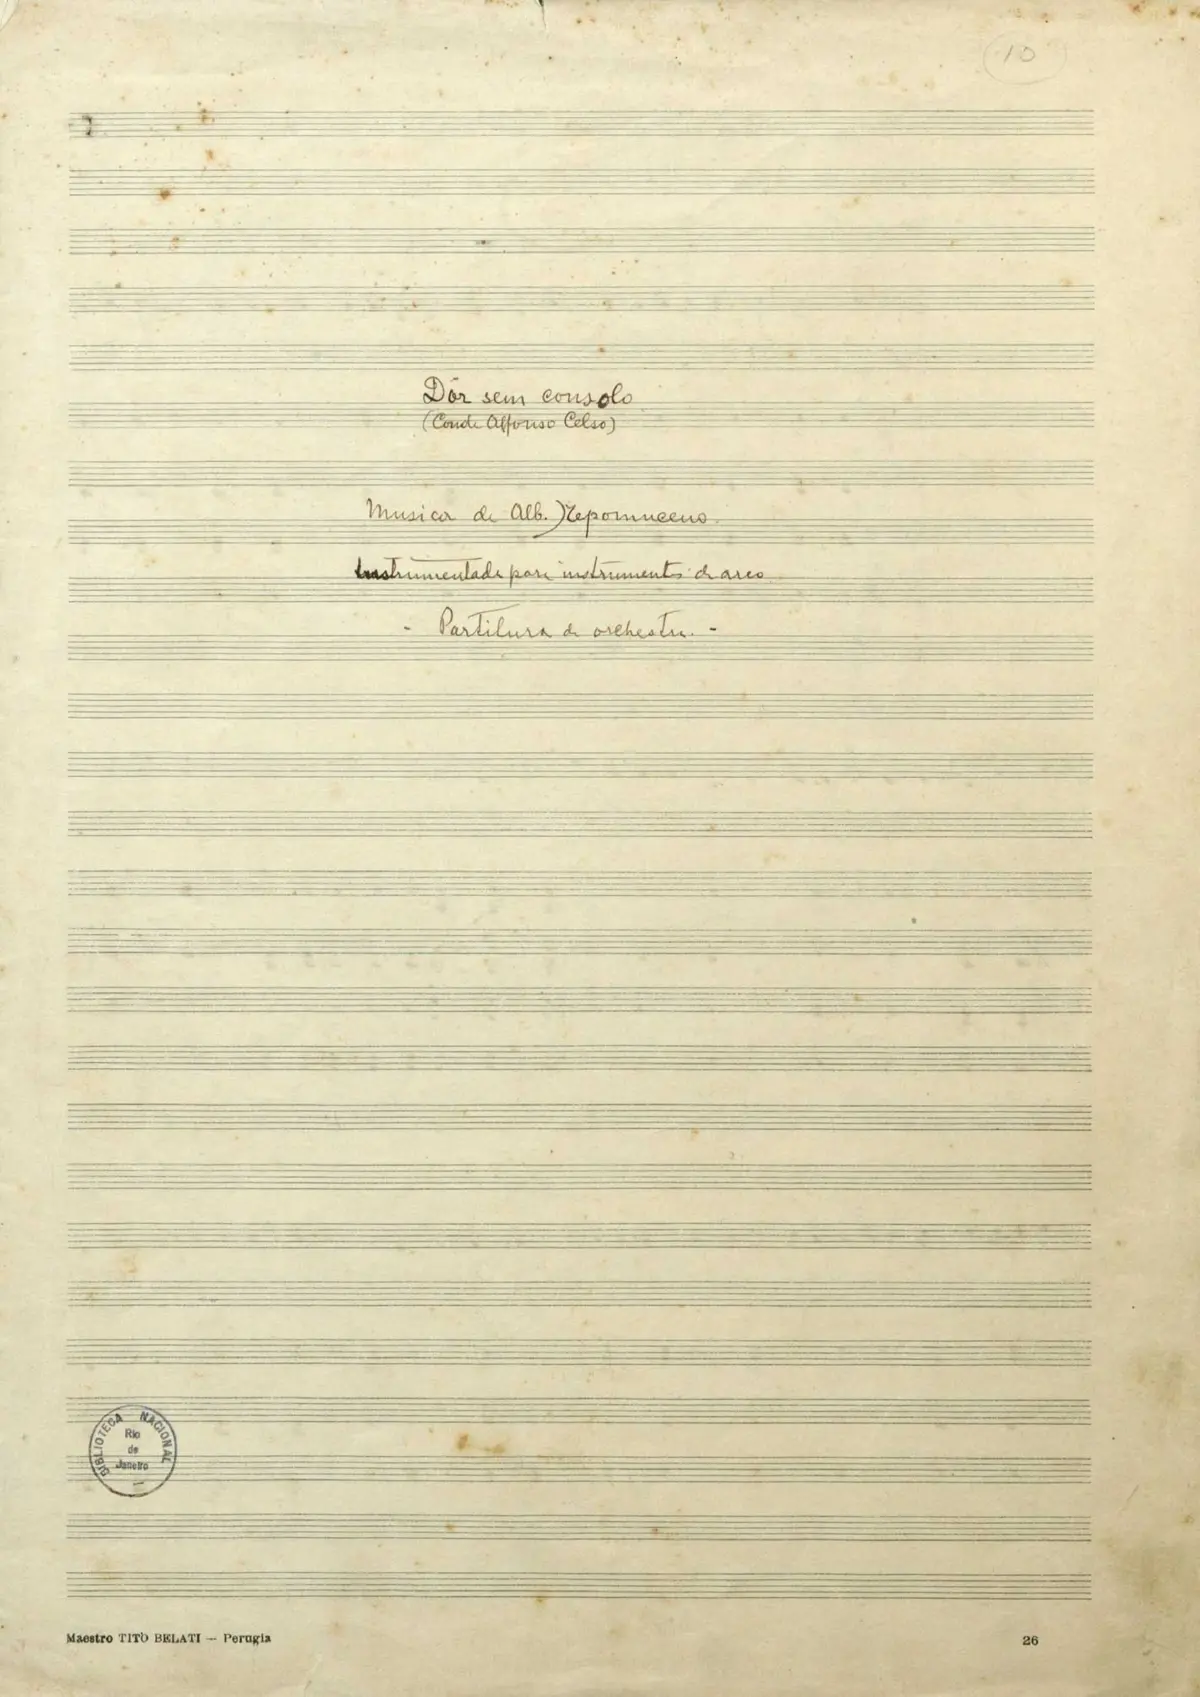 10
Dôr sem consolo
(Conde Affonso Celso)
Musica de Alb. Nepomuceno.
Instrumentada para instrumentos de arco
- Partitura de orchestra. -
BIBLIOTECA NACIONAL
Rio
de
Janeiro
Maestro TITO BELATI — Perugia
26